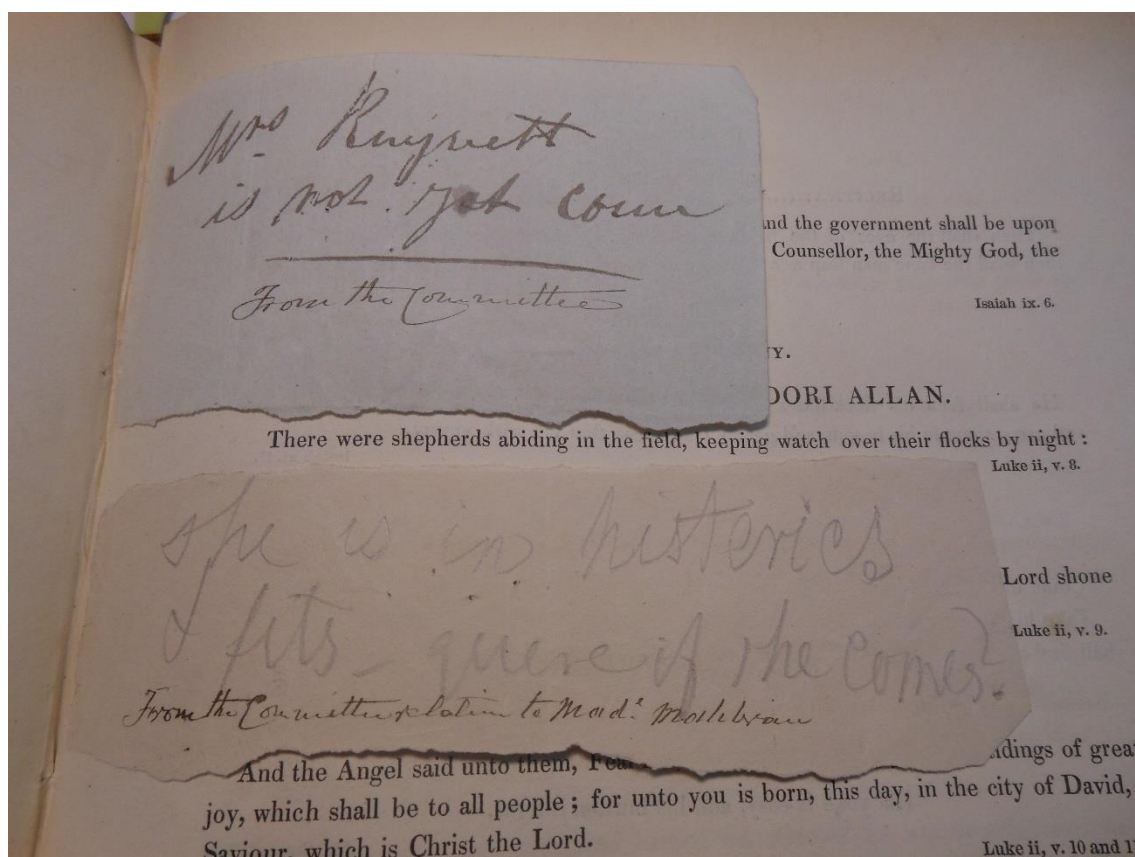 Mrs Knyvett
is not yet come
From the Committee
nd the government shall be upon
Counsellor, the Mighty God, the
Isaiah ix. 6.
NY.
DORI ALLAN.
There were shepherds abiding in the field, keeping watch over their flocks by night :
Luke ii, v. 8.
she is in histerics
& fits – quere if she comes?
From the Committee relation to Mad.e Malibran
Lord shone
Luke ii, v. 9.
And the Angel said unto them, Fear dings of grea
joy, which shall be to all people ; for unto you is born, this day, in the city of David,
Saviour, which is Christ the Lord.
Luke ii, v. 10 and 1